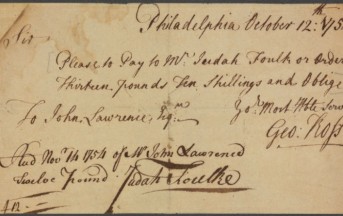 Philadelphia October 12:th 175
Sir
Please to Pay to Mr Judah Foulk or Order
Thirteen pounds Ten Shillings and Oblige
Yor Most Hble Serv
To John Lawrence, Esqr
Geo: Ross
Recd Novr 14 1754 of Mr John Lawrence
Twelve Pound Judah Foulke
£12